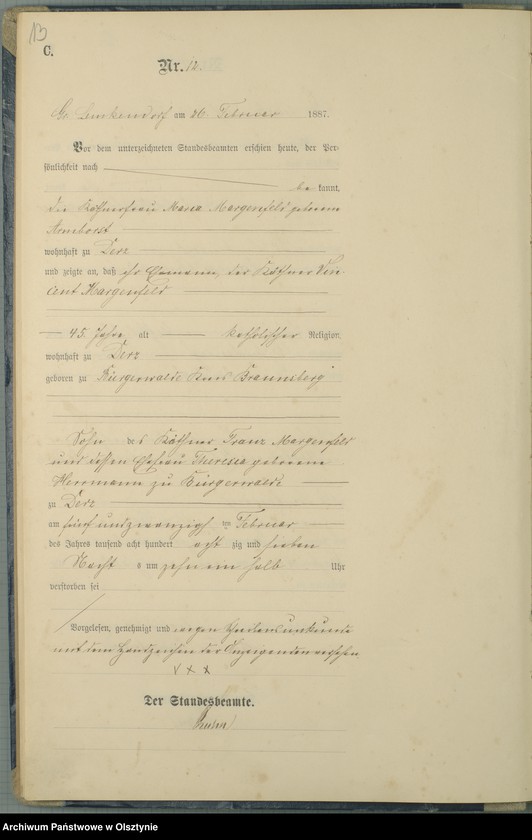 13
C.
Nr. 12.
Gr. Lemkendorf am 26 Februar 1887.
Vor dem unterzeichneten Standesbeamten erschien heute, der Per-
sönlichkeit nach
be kannt,
die Käthnerfrau Maria Margenfeld geborene
Armborst
wohnhaft zu Derz
und zeigte an, daß ihr Ehemann, der Käthner Vin-
cent Margenfeld
45 Jahre alt katholischer Religion,
wohnhaft zu Derz
geboren zu Bürgerwalde Kreis Braunsberg
Sohn des Käthner Franz Margenfeld
und dessen Ehefrau Theresia geborene
Herrmann zu Bürgerwalde
zu Derz
am fünf und zwanzigst en Februar
des Jahres tausend acht hundert acht zig und sieben
Nacht s um zehn ein halb Uhr
verstorben sei
Vorgelesen, genehmigt und wegen Schreibensunkunde
mit dem Handzeichen der Anzeigenden versehen
x x x
Der Standesbeamte.
Archiwum Państwowe w Olsztynie